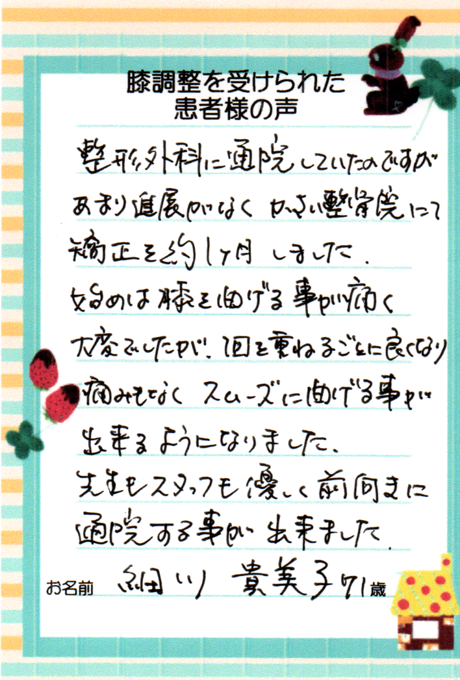 膝調整を受けられた
患者様の声
整形外科に通院していたのですが
あまり進展がなく かさい整骨院にて
矯正を約1ヶ月 しました.
始めは膝を曲げる事が痛く
大変でしたが、1回を重ねるごとに良くなり
痛みもなく スムーズに曲げる事が
出来るようになりました.
先生もスタッフも優しく前向きに
通院する事が 出来ました.
お名前 細川 貴美子 71歳